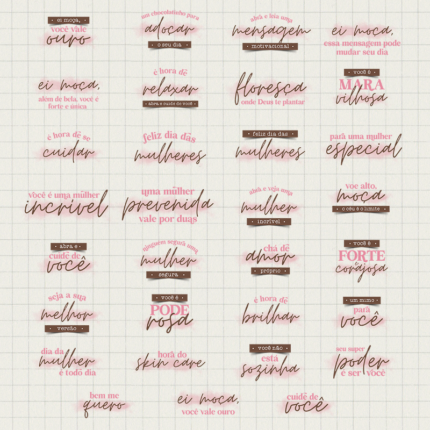 ei moça,
você vale
ouro
um chocolatinho para
adoçar
o seu dia
abra e leia uma
mensagem
motivacional
ei moça,
essa mensagem pode
mudar seu dia
ei moça,
além de bela, você é
forte e única
é hora de
relaxar
abra e cuide de você
floresça
onde Deus te plantar
você é
MARA
vilhosa
é hora de se
cuidar
feliz dia das
mulheres
feliz dia das
mulheres
para uma mulher
especial
você é uma mulher
incrível
uma mulher
prevenida
vale por duas
abra e veja uma
mulher
incrível
voe alto,
moça
o céu é o limite
abra e
cuide de
você
ninguém segura uma
mulher
segura
chá de
amor
próprio
você é
FORTE
corajosa
seja a sua
melhor
versão
você é
PODE
rosa
é hora de
brilhar
um mimo
para
você
dia da
mulher
é todo dia
hora do
skin care
você não
está
sozinha
seu super
poder
é ser você
bem me
quero
ei moça,
você vale ouro
cuide de
você